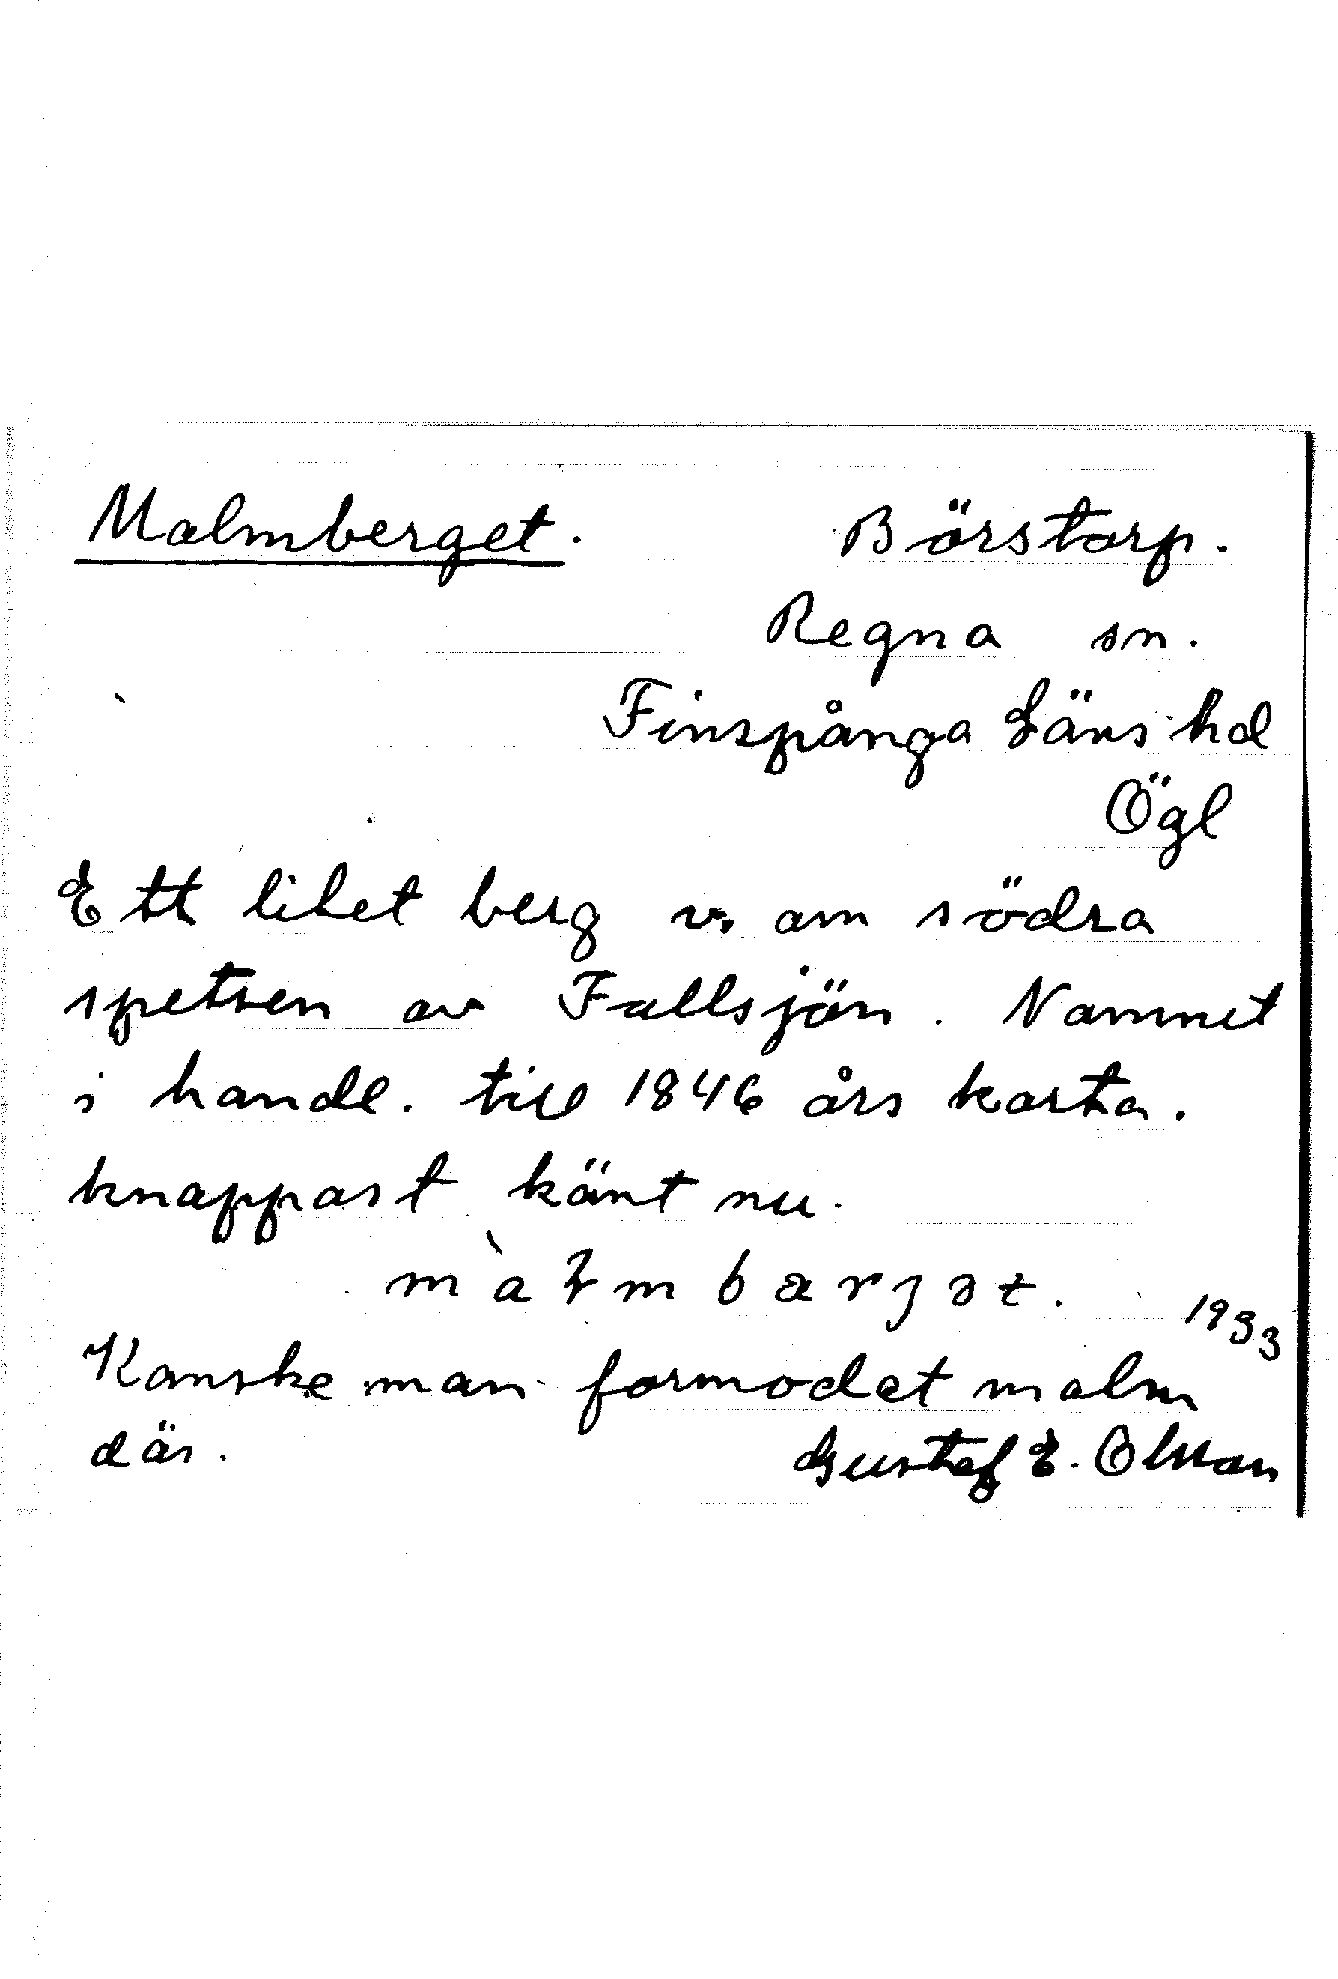 Malmberget. Börstorp.
Regna sn.
Finspånga Läns hd
Ögl
Ett litet berg v. om södra
spetsen av Fallsjön. Namnet
i handl. till 1846 års karta.
knappast känt nu.
màɫmbærjət. 1933
Kanske man formodet malm
där. Gustaf E. Olsson